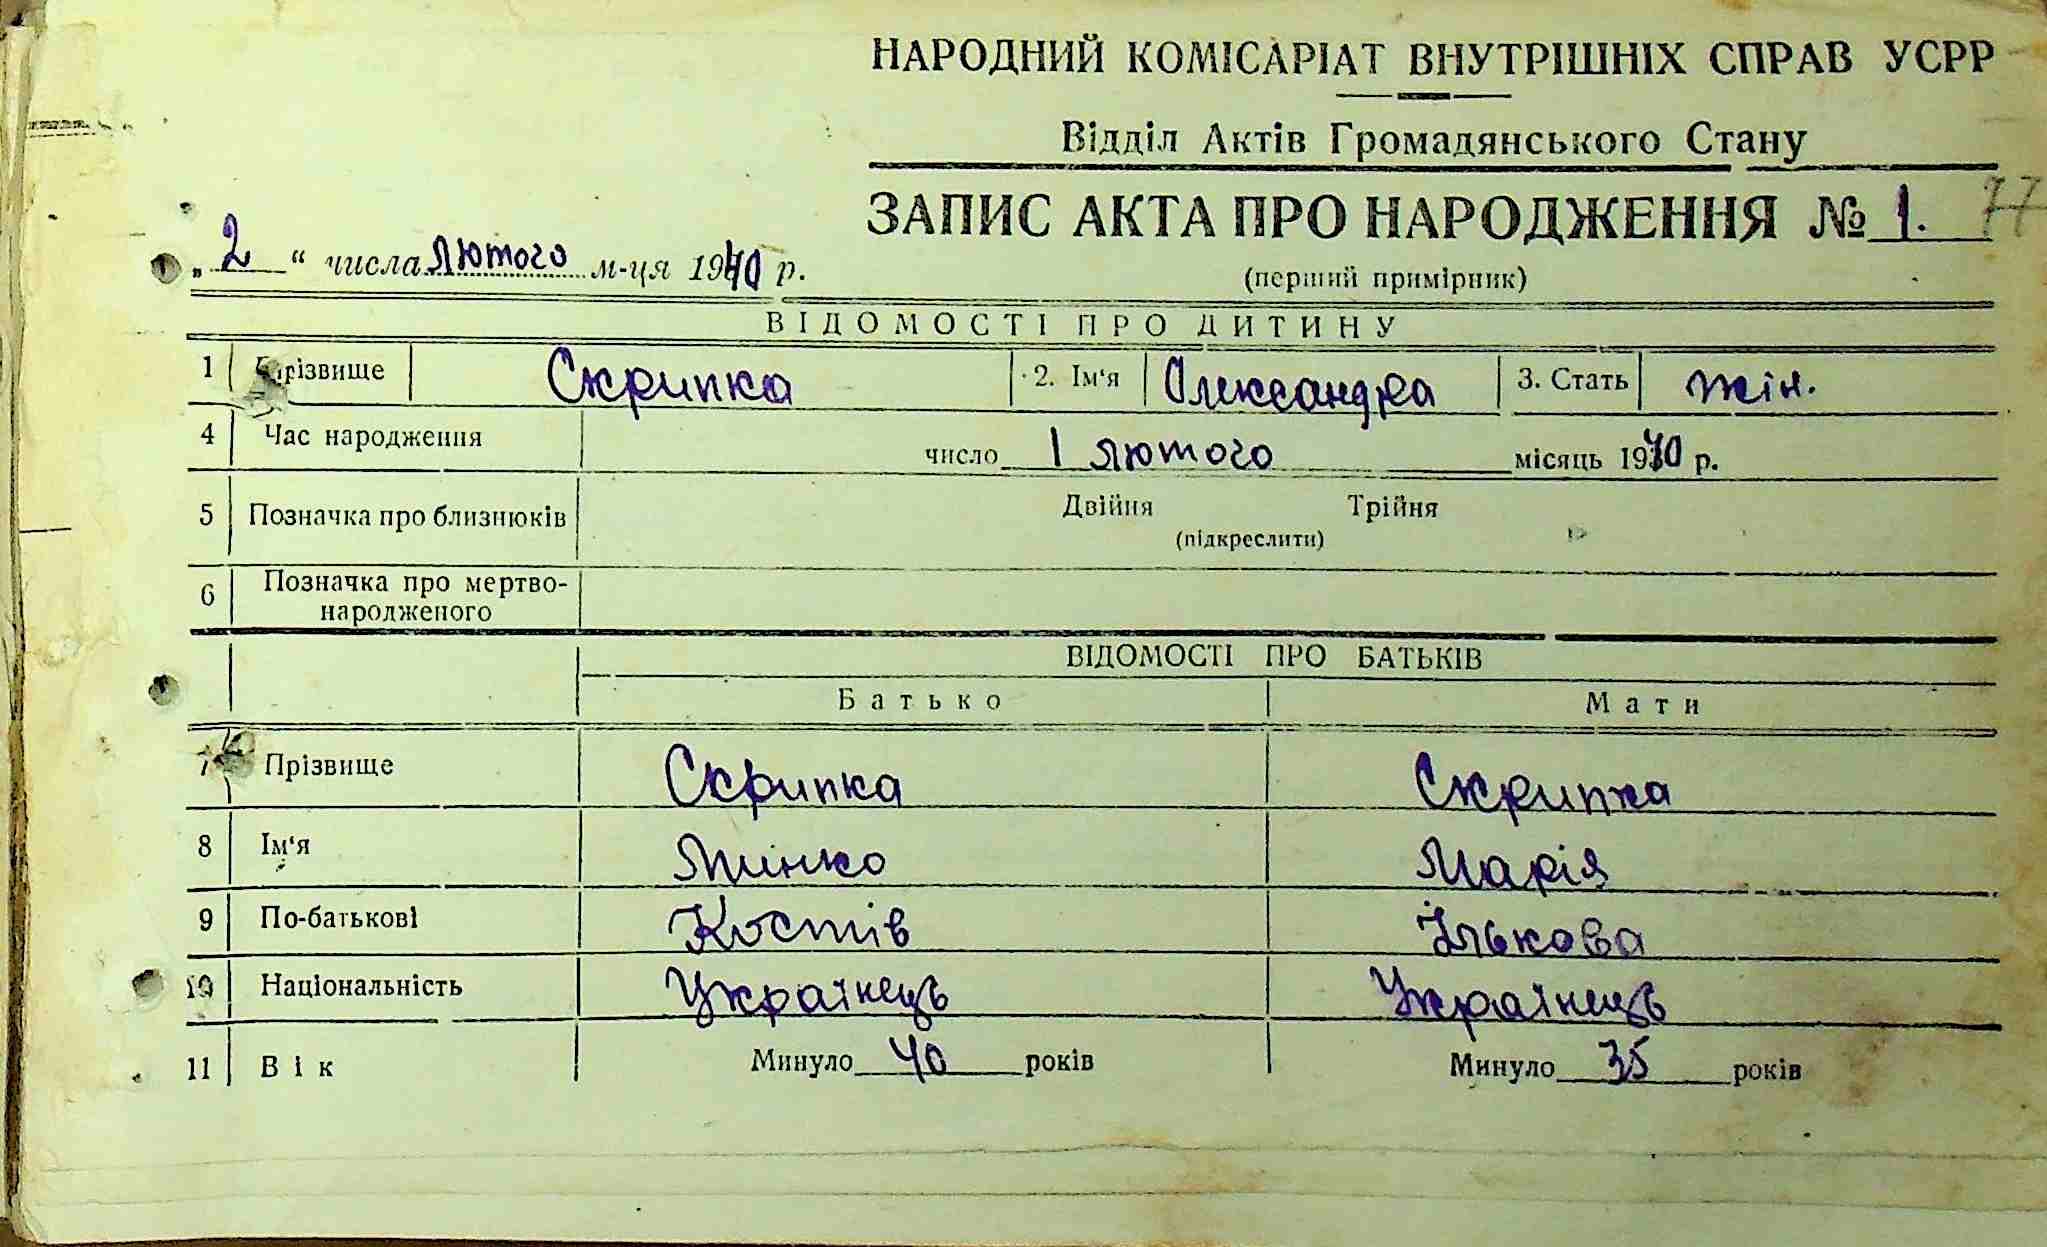 НАРОДНИЙ КОМІСАРІАТ ВНУТРІШНІХ СПРАВ УСРР
Відділ Актів Громадянського Стану
ЗАПИС АКТА ПРО НАРОДЖЕННЯ № 1. 77
„2“ числа лютого м-ця 1940 р.
(перший примірник)
ВІДОМОСТІ ПРО ДИТИНУ
1 Прізвище Скрипка 2. Ім‘я Олександра 3. Стать жін.
4 Час народження число 1 лютого місяць 1940 р.
5 Позначка про близнюків Двійня Трійня
(підкреслити)
6 Позначка про мертво-
народженого
ВІДОМОСТІ ПРО БАТЬКІВ
Батько Мати
7 Прізвище Скрипка Скрипка
8 Ім‘я Минко Марія
9 По-батькові Костів Ількова
10 Національність Українець Українець
11 Вік Минуло 40 років Минуло 35 років